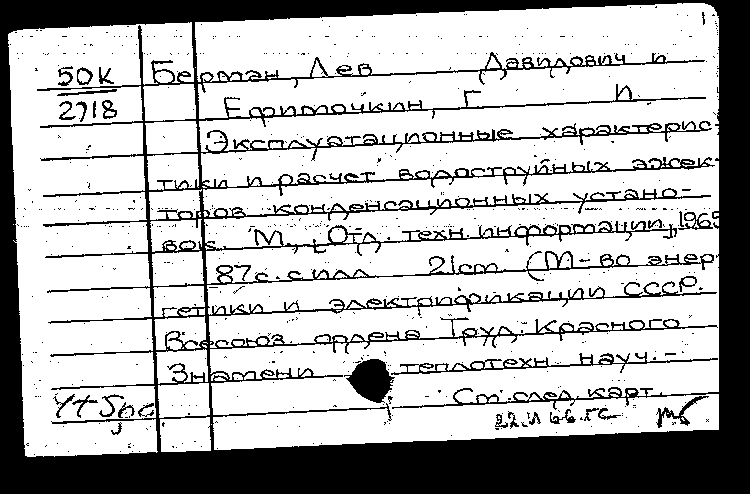 1
50К Берман, Лев Давидович и
2718 Ефимочкин, Г И.
Эксплуатационные характерис-
тики и расчет водоструйных эжек-
торов конденсационных устано-
вок. М., [Отд. техн. информации], 1965
87с. с илл 21cm. (М-во энер-
гетики и электрификации СССР.
Всесоюз. ордена Труд. Красного
Знамени теплотехн науч.-
См. след. карт.
22.